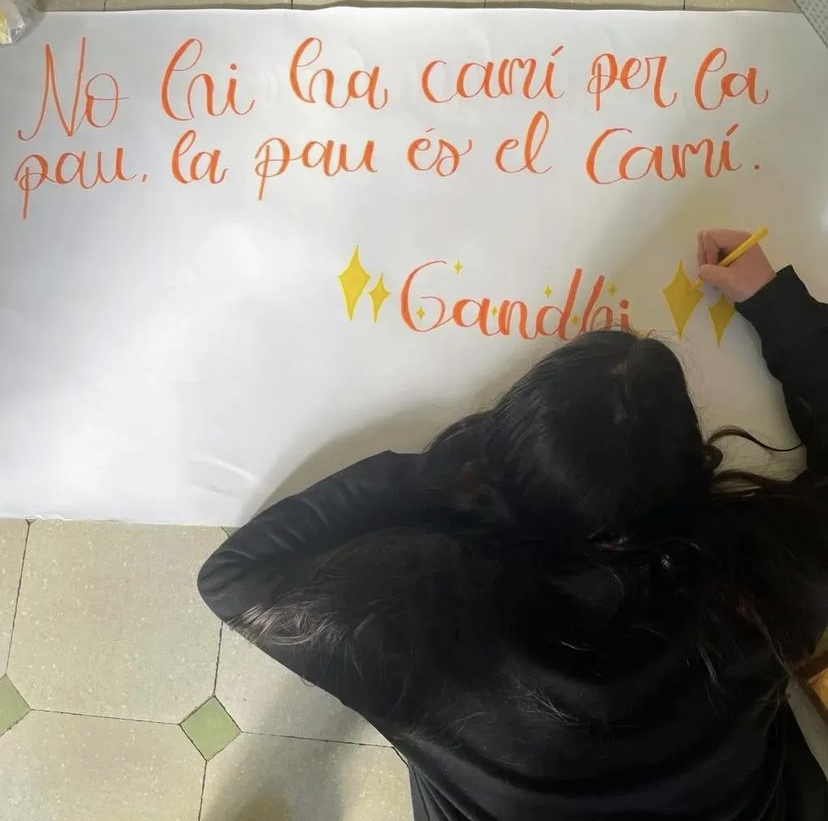 No hi ha camí per la
pau, la pau és el Camí.
Gandhi